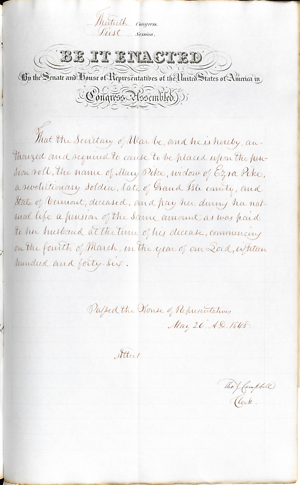 Thirtieth Congress
First Session.
BE IT ENACTED
By the Senate and House of Representatives of the United States of America in
Congress Assembled,
That the Secretary of War be, and he is hereby, au-
thorized and required to cause to be placed upon the pen-
sion roll, the name of Mary Pike, widow of Ezra Pike,
a revolutionary soldier, late of Grand Isle county, and
State of Vermont, deceased, and pay her during her nat-
ural life a pension of the same amount, as was paid
to her husband at the time of his decease, commencing
on the fourth of March, in the year of our Lord, eighteen
hundred and forty-six.
Passed the House of Representatives
May 26 A.D.
Attest.
Tho. J. Campbell
Clerk